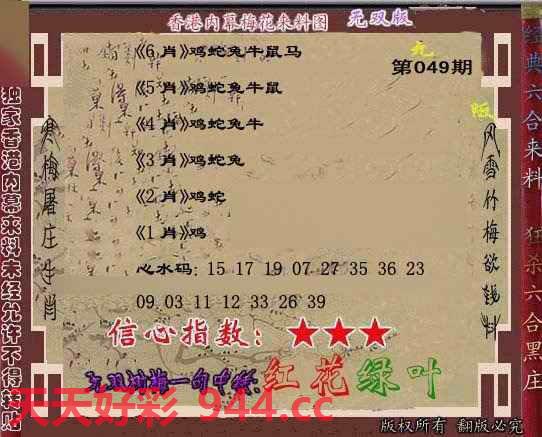 香港内幕梅花来料图 无双版
九
第049期
《6 肖》鸡蛇兔牛鼠马
《5 肖》鸡蛇兔牛鼠
《4 肖》鸡蛇兔牛
《3 肖》鸡蛇兔
《2 肖》鸡蛇
《1 肖》鸡
心水码: 15 17 19 07 27 35 36 23
09 03 11 12 33 26 39
信心指数: ★★★
一句中特: 红花绿叶
天天好彩 944.cc
版权所有 翻版必究
独家香港内幕来料未经允许不得转贴
寒梅屠庄生肖
风雪竹梅欲钱料
经典六合来料 狂杀六合黑庄